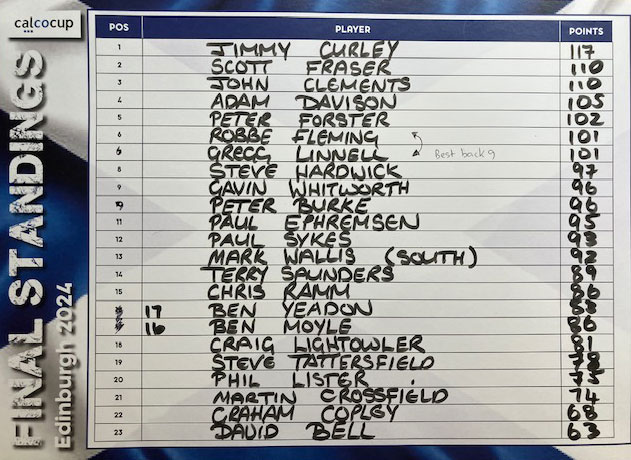 calcocup
FINAL STANDINGS
Edinburgh 2024
POS PLAYER POINTS
1 JIMMY CURLEY 117
2 SCOTT FRASER 110
3 JOHN CLEMENTS 110
4 ADAM DAVISON 105
5 PETER FORSTER 102
6 ROBBE FLEMING 101
6 GREGG LINNELL Best back 9 101
8 STEVE HARDWICK 97
9 GAVIN WHITWORTH 96
9 PETER BURKE 96
11 PAUL EPHREMSEN 95
12 PAUL SYKES 93
13 MARK WALLIS (SOUTH) 92
14 TERRY SAUNDERS 89
15 CHRIS RAMM 86
17 BEN YEADON
16 BEN MOYLE 86
18 CRAIG LIGHTOWLER 81
19 STEVE TATTERSFIELD 78
20 PHIL LISTER 75
21 MARTIN CROSSFIELD 74
22 GRAHAM COPLEY 68
23 DAVID BELL 63